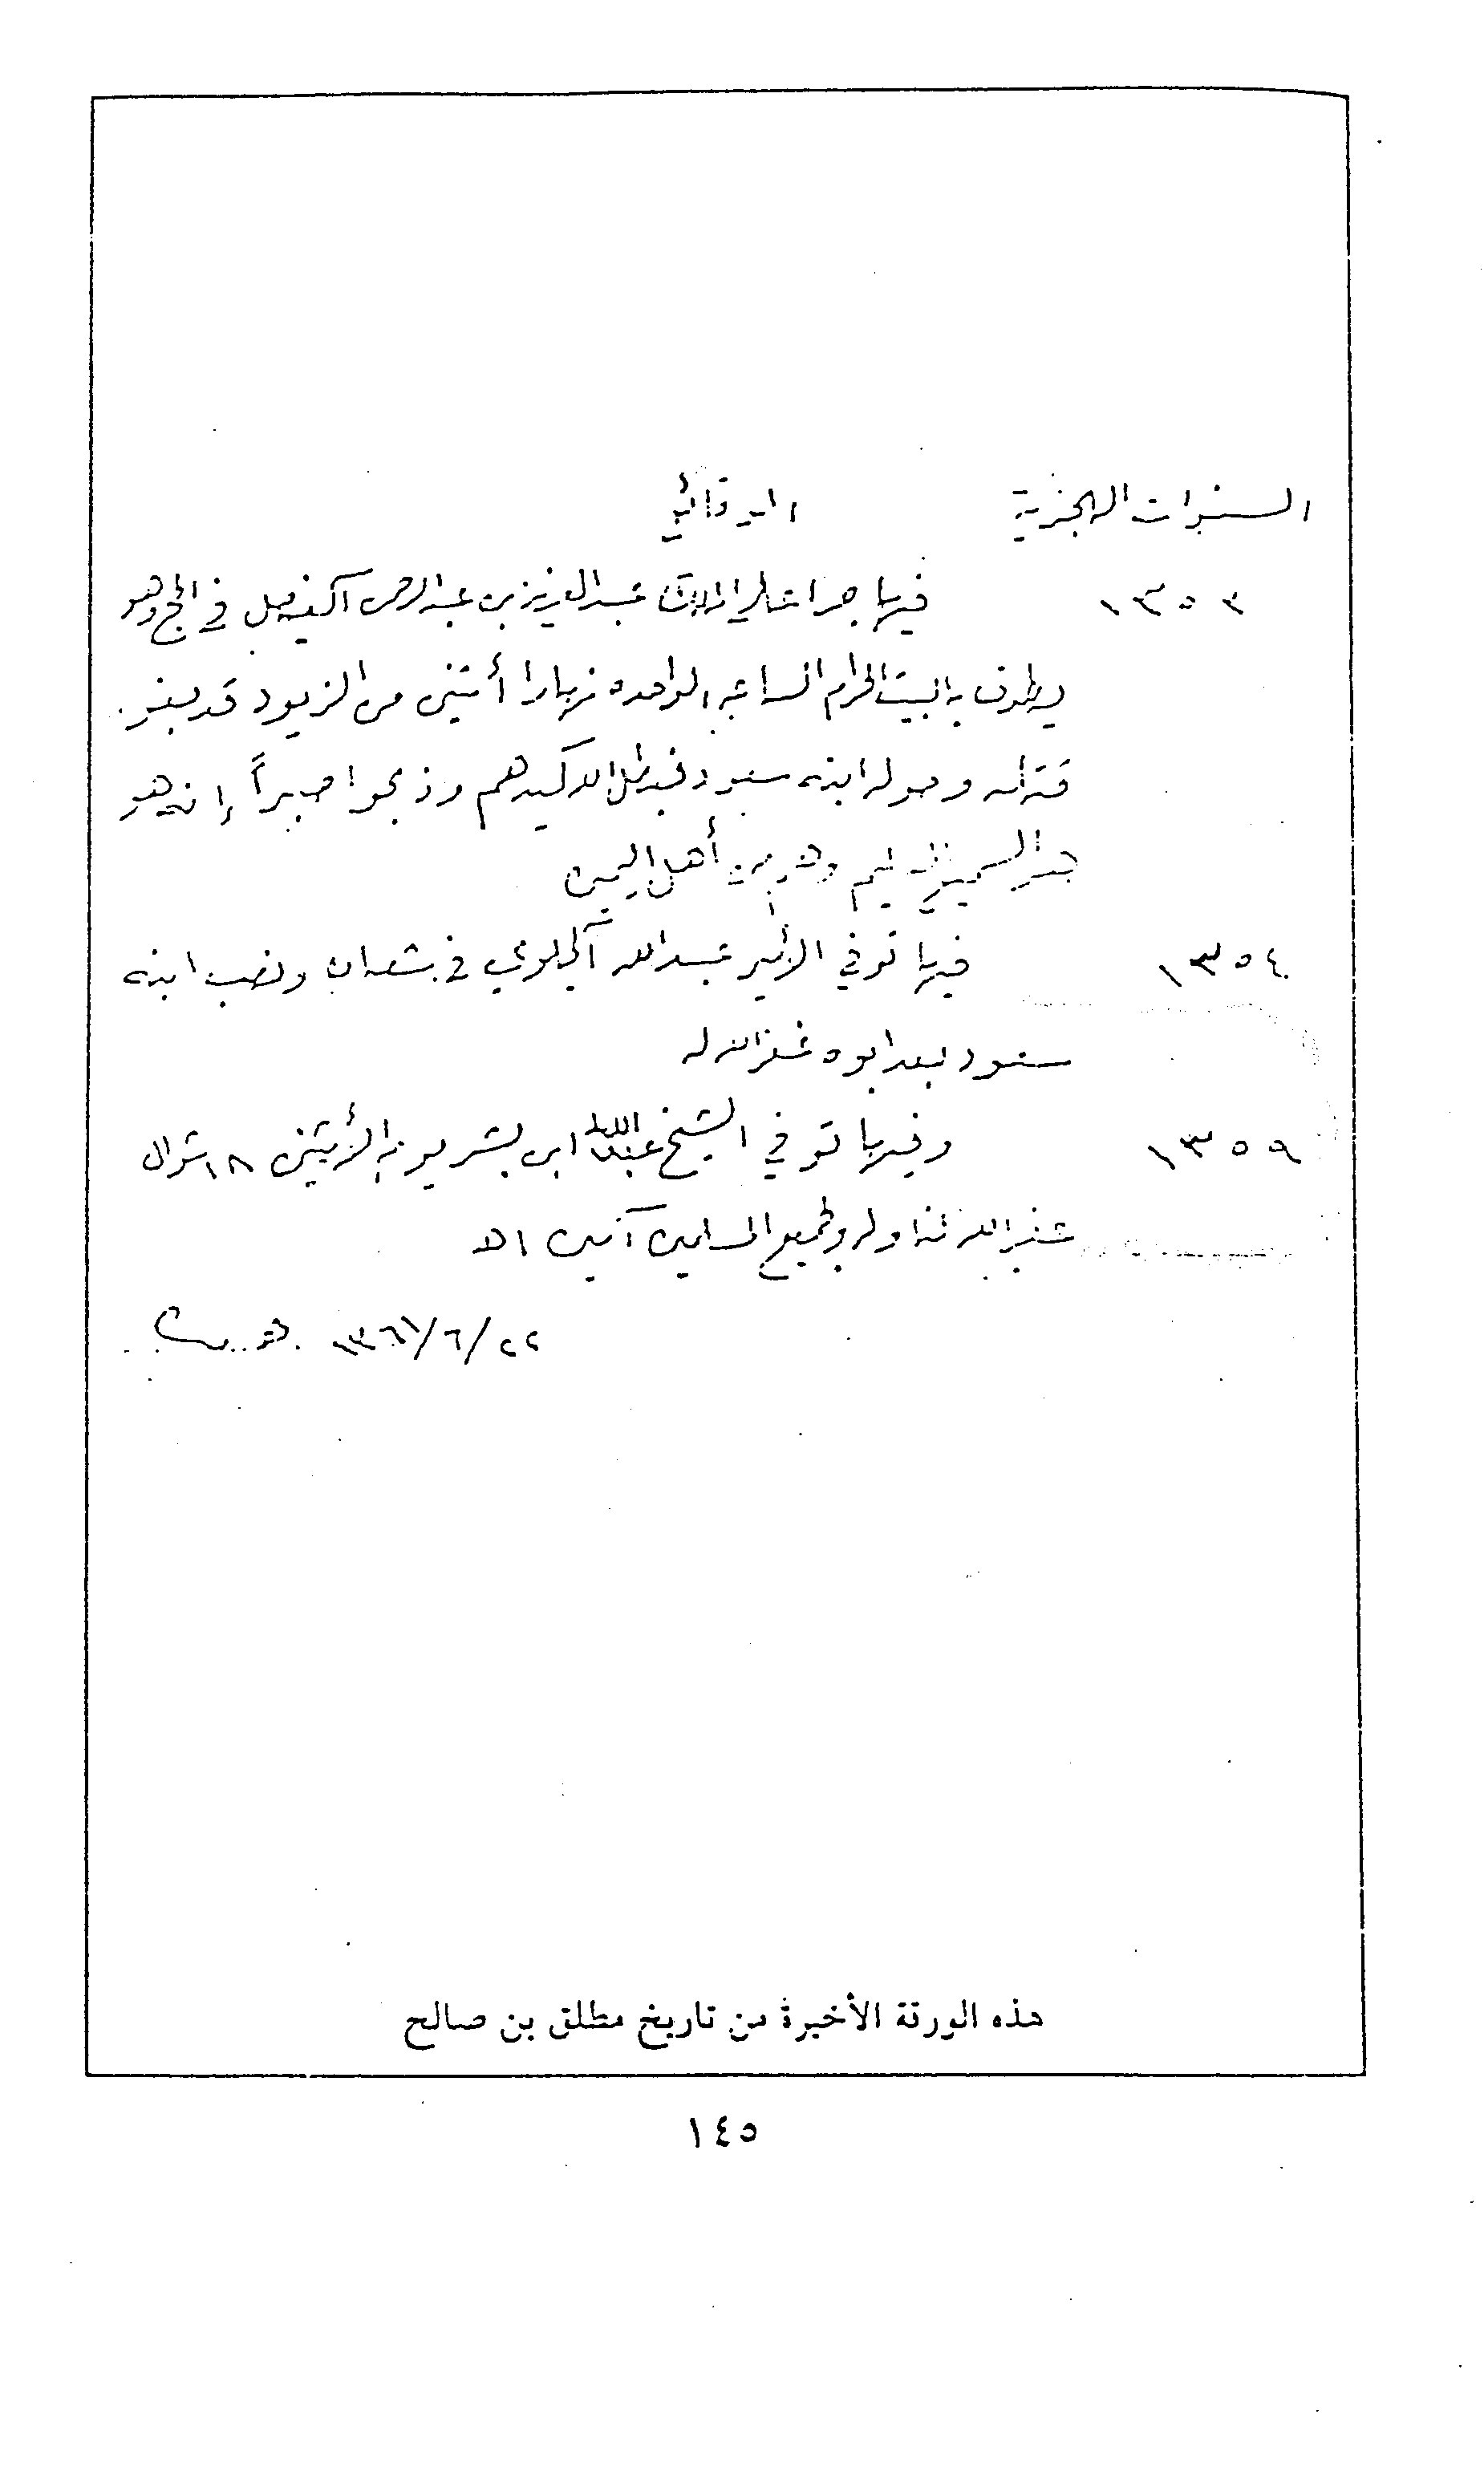 السنوات الهجرية الوقائع
١٣٥٣ فيها جرا على الملك عبدالعزيز بن عبدالرحمن آل فيصل في الحج وهو
يطوف بالبيت الحرام الساعه الواحده نهارا أثنين من الزيود قد بغو
قتله وحوله ابنه سعود فبطل الله كيدهم وذبحوا صبراً إنه هو
السميع العليم وهم من أهل اليمن
١٣٥٤ فيها توفي الأمير عبدالله آل جلوي في شعبان ونصب ابنه
سعود بعد ابوه غفر الله له
١٣٥٩ وفيها توفي الشيخ عبدالله ابن بشر يوم الأثنين ١٨ شوال
غفر الله لنا وله ولجميع المسلمين آمين اهـ
١٣٦١/٦/٢٢ هـ
هذه الورقة الأخيرة من تاريخ مطلق بن صالح
١٤٥